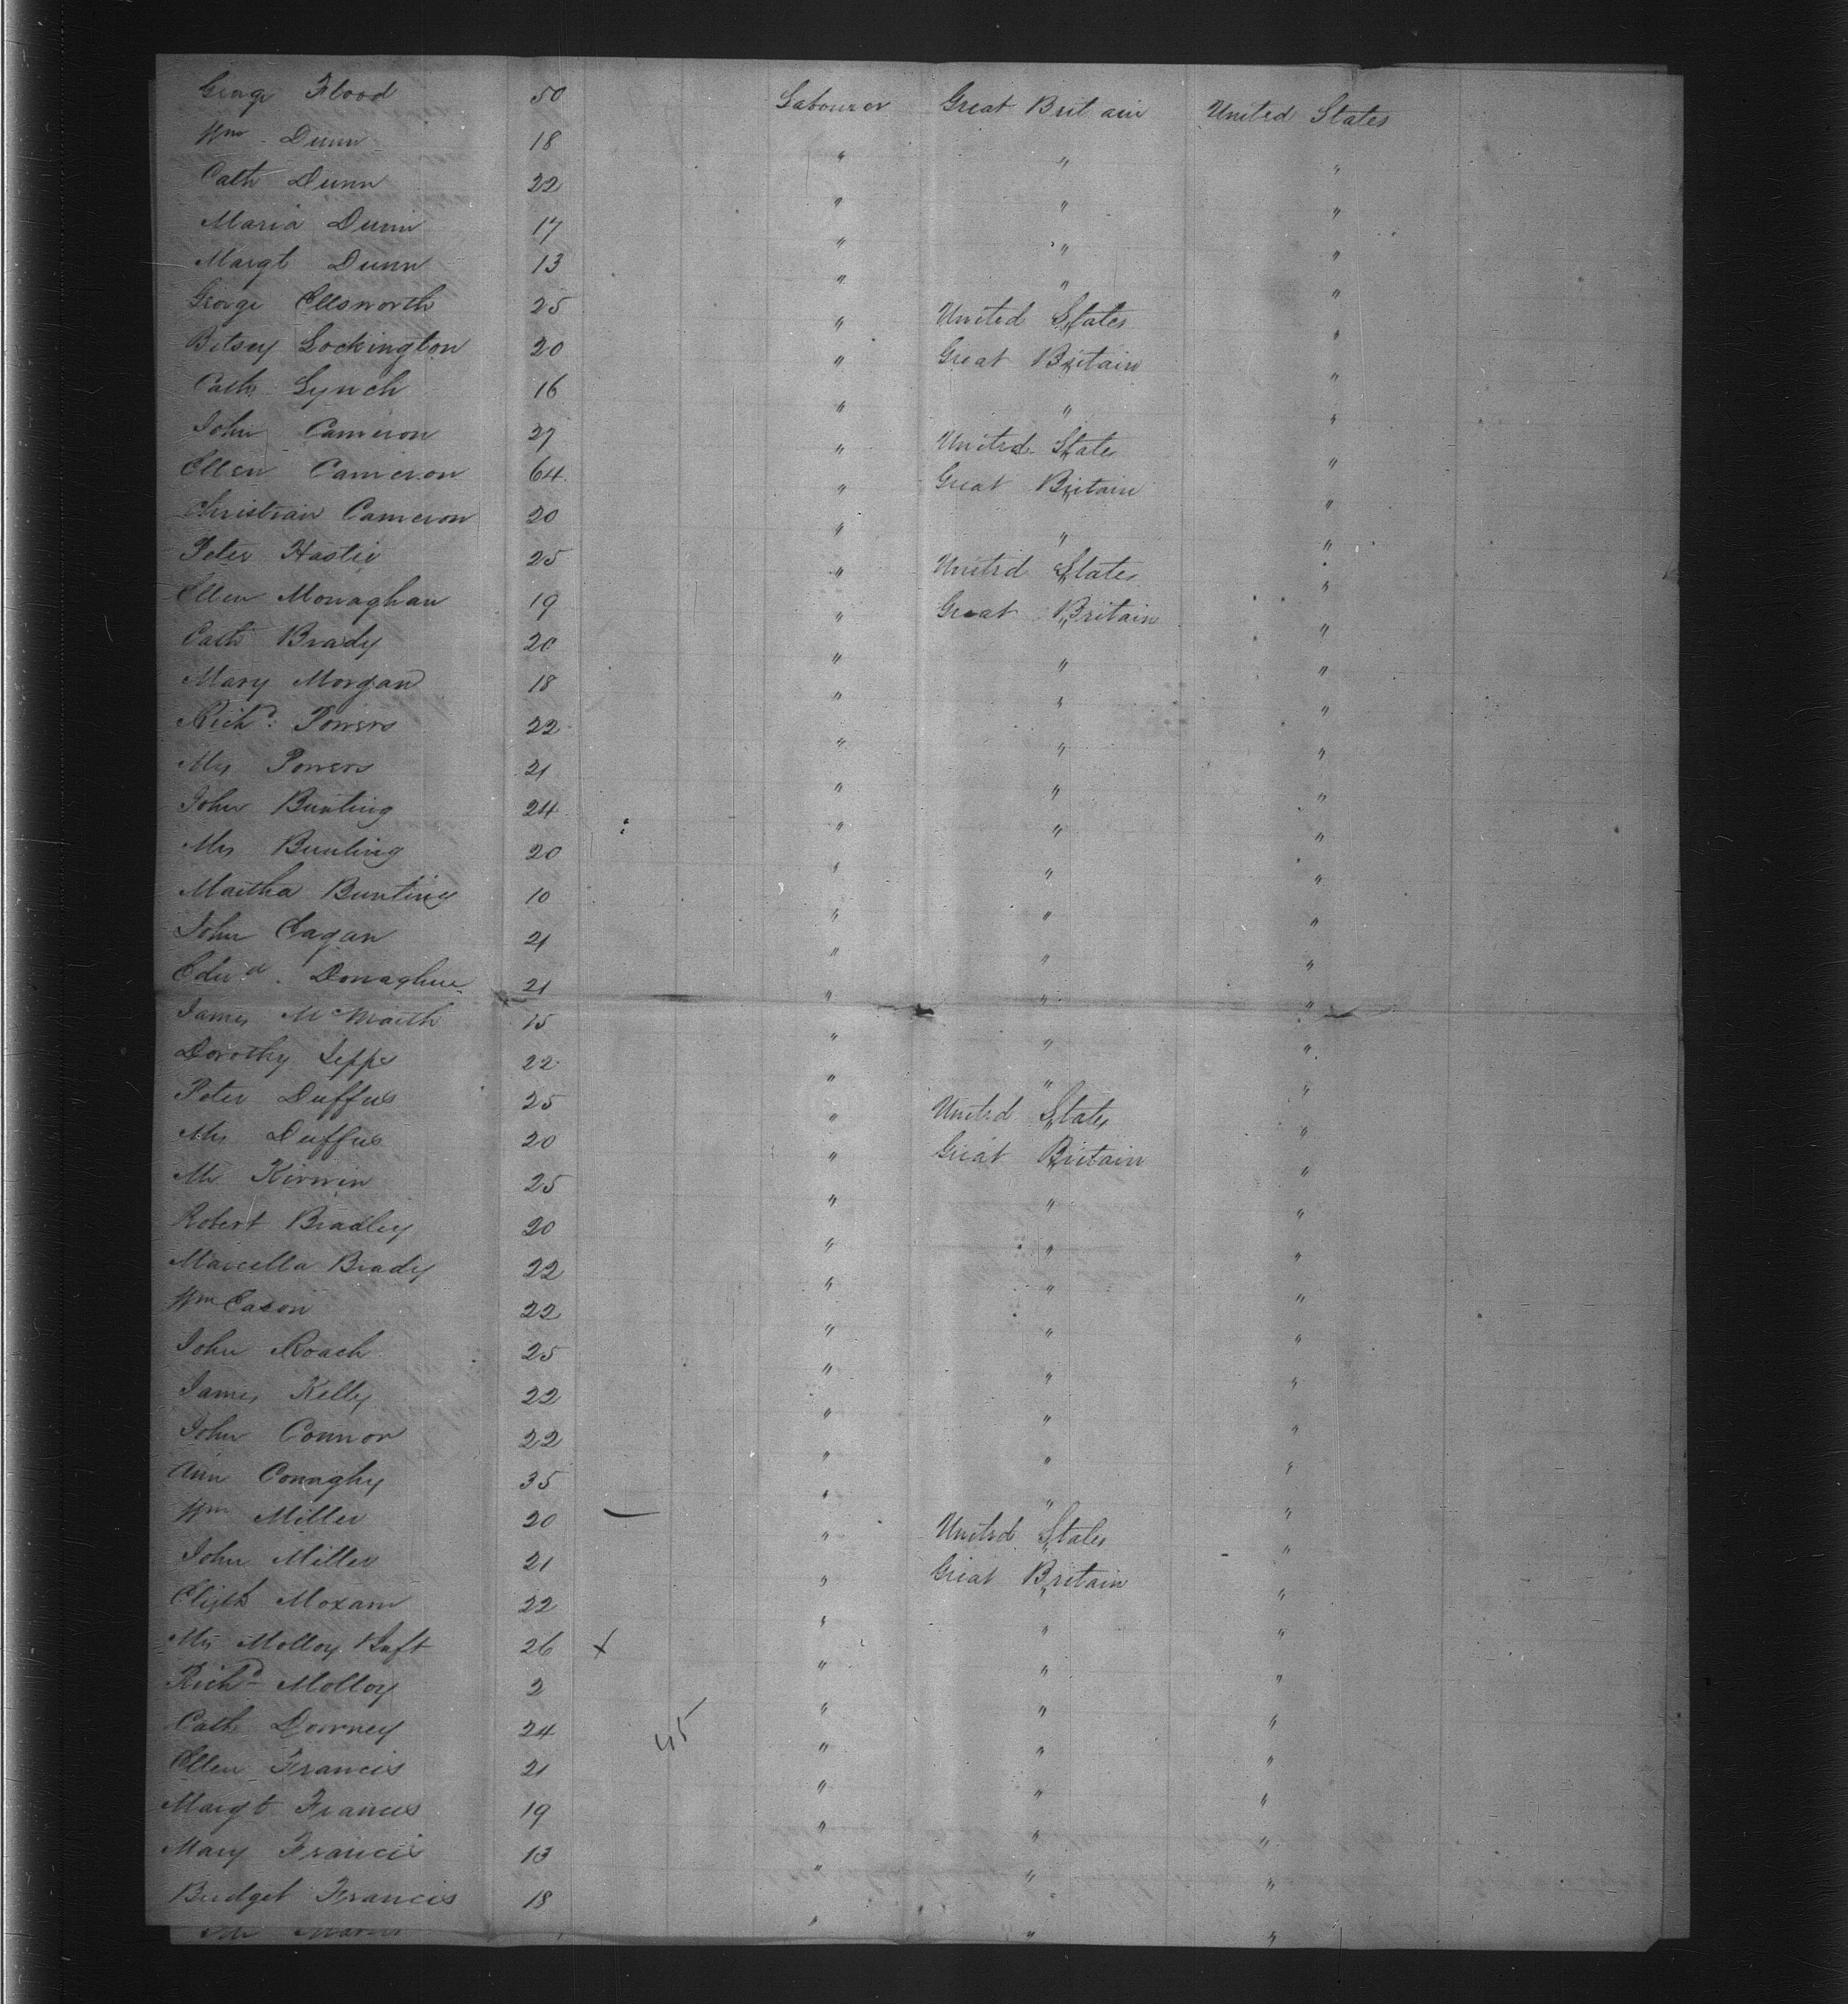 George Flood 50 Labourer Great Britain United States
Wm Dunn 18 " " "
Cath Dunn 22 " " "
Maria Dunn 17 " " "
Margt Dunn 13 " " "
George Ellsworth 25 " United States "
Betsey Lockington 20 " Great Britain "
Cath Lynch 16 " " "
John Cameron 27 " United States "
Ellen Cameron 64 " Great Britain "
Christian Cameron 20 " " "
Peter Hastie 25 " United States "
Ellen Monaghan 19 " Great Britain "
Cath Brady 20 " " "
Mary Morgan 18 " " "
Richd. Powers 22 " " "
Mrs Powers 21 " " "
John Bunting 24 " " "
Mrs Bunting 20 " " "
Martha Bunting 10 " " "
John Eagan 21 " " "
Edwd. Donaghue 21 " " "
James 15 " " "
Dorothy 22 " " "
Peter Duffus 25 " United States "
Mrs Duffus 20 " Great Britain "
Mr Kirwin 25 " " "
Robert Bradley 20 " " "
Marcella Brady 22 " " "
Wm 22 " " "
John Roach 25 " " "
James Kelly 22 " " "
John Connor 22 " " "
Ann Conaghy 35 " " "
Wm Miller 20 — " United States "
John Miller 21 " Great Britain "
Elizth Moxam 22 " " "
Mrs Molloy & Inft 26 x " " "
Richd Molloy 2 " " "
Cath Downey 24 45 " " "
Ellen Francis 21 " " "
Margt Francis 19 " " "
Mary Francis 13 " " "
Bridget Francis 18 " " "